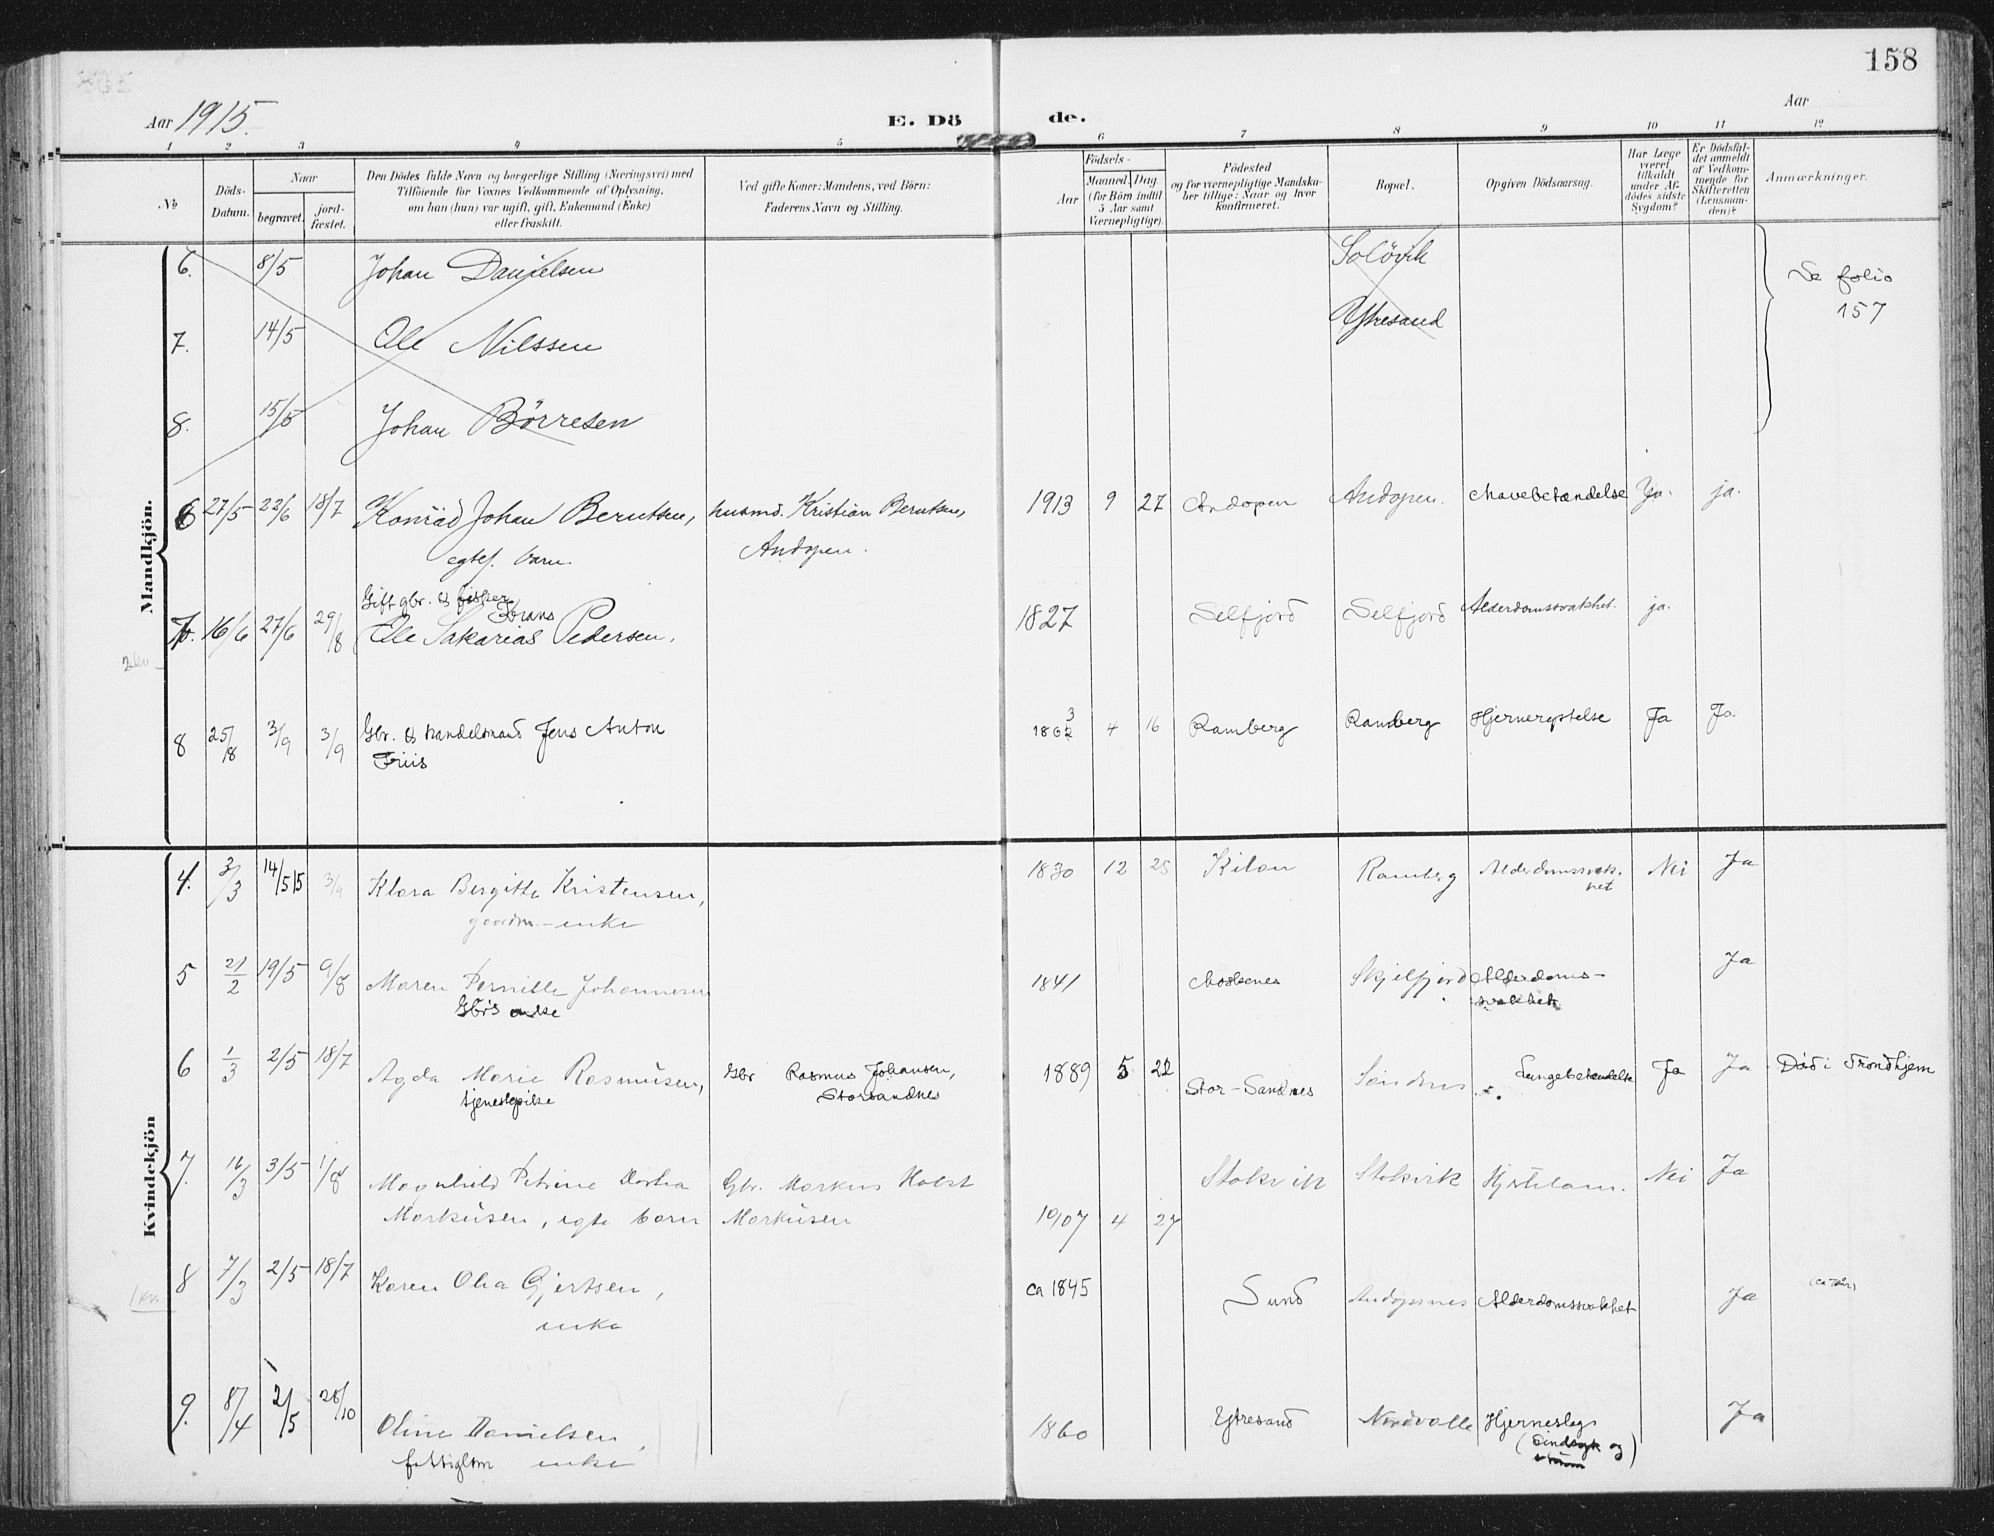 158
Aar 1915.
E. Dö de.
Aar
1 2 3 4 5 6 7 8 9 10 11 12
No
Döds-Datum.
Naar
begravet.
jord-fæstet.
Den Dödes fulde Navn og borgerlige Stilling (Næringsvei) med
Tilföiende for Voxnes Vedkommende af Oplysning,
om han (hun) var ugift, gift, Enkemand (Enke)
eller fraskilt.
Ved gifte Koner: Mandens, ved Börn:
Faderens Navn og Stilling.
Födsels-
Aar
Maaned. Dag.
(for Börn indtil
5 Aar samt
Værnepligtige).
Födested
og for værnepligtige Mandska-
ber tillige: Naar og hvor
konfirmeret.
Bopæl.
Opgiven Dödsaarsag.
Har Læge
været
tilkaldt
under Af-
dödes sidste
Sygdom?
Er Dödsfal-
det anmeldt
af Vedkom-
mende for
Skifteretten
(Lensman-
den)?
Anmærkninger.
Mandkjön.
6. 8/5 Johan Danielsen Solövik
Se folio
157
7. 14/5 Ole Nilssen Ytresand
8. 15/5 Johan Börresen
6 27/5 22/6 18/7 Konrad Johan Berntsen, husmd. Kristian Berntsen, 1913 9 27 Andopen Andopen. Mavebetændelse Ja. ja.
egtef. barn. Andopen.
Gift gbr. og fisker
Hans
7. 16/6 27/6 29/8 Ole Sakarias Pedersen, 1827 Selfjord Selfjord Alderdomssvakhet. ja.
8 25/8 3/9 3/9 Gbr. og handelsmand Jens Anton 1863 4 16 Ramberg Ramberg Hjernerystelse Ja Ja.
Friis
Kvindekjön
4. 3/3 14/5 15 3/9 Klara Bergitte Kristensen, 1830 12 25 Kilan Ramberg Alderdomssvak-
het Nei Ja
gaardm.-enke
5 21/2 19/5 9/8 Maren Pernille Johannesen 1841 Moskenes Skjelfjord Alderdoms-
svakhet. Ja
Gbr's enke
6 1/3 2/5 18/7 Agda Marie Rasmusen, Gbr Rasmus Johansen, 1889 5 22 Stor-Sandnes Sandnes Lungebetændelse Ja Ja Död i Trondhjem
tjenestepike Storsandnes
7. 16/3 3/5 1/8 Magnhild Petrine Dorthea Gbr. Markus Holst Stokvik Stokvik Hjertelam. Nei Ja
Markusen, egte barn Markusen 1907 4 27
8 7/3 2/5 18/7 Karen Olea Gjertsen, ca 1845 Sund Andopsnes Alderdomssvakhet Ja
enke
9. 8/4 2/5 28/10 Oline Danielsen, 1860 Ytresand Nordvolle Hjerneslag Ja
fattiglem enke (Sindsyk og
stum)